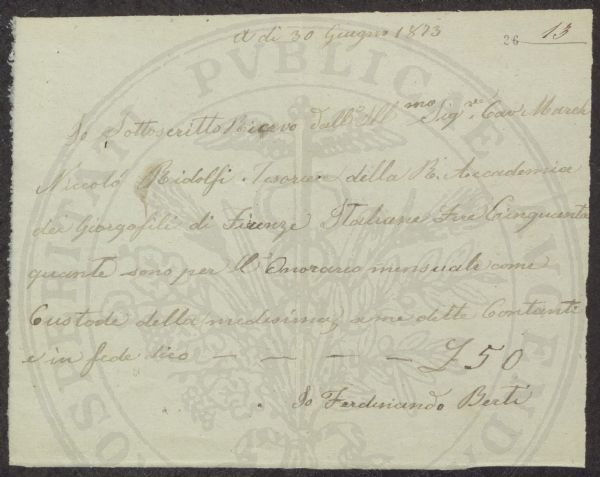 A dì 30 Giugno 1873
26 13
Io Sottoscritto Ricevo dall' Ill.mo Sig.re Cav. March
Niccolò Ridolfi Tesorier della R. Accademia
dei Giorgofili di Firenze Italiane Lire Cinquanta
quante sono per il Onorario mensuale come
Custode della medesima, a me dette Contanti
e in fede dico — — — — £ 50
Io Ferdinando Berti
PVBLICAE
PROSPERITATI